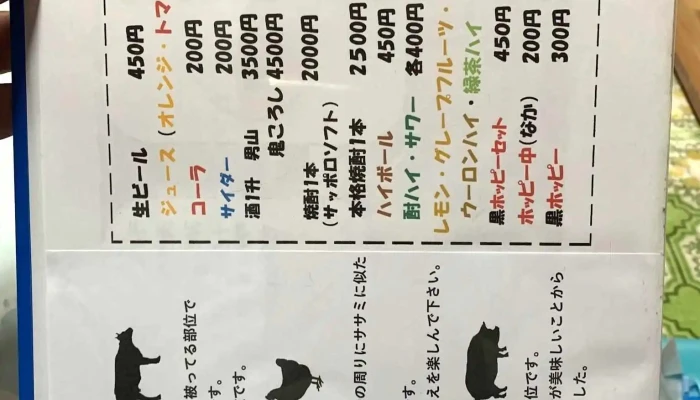 生ビール 450円
ジュース（オレンジ・トマ
コーラ 200円
サイダー 200円
酒1升 男山 3500円
鬼ころし 4500円
焼酎1本 2000円
(サッポロソフト)
本格焼酎1本 2500円
ハイボール 450円
酎ハイ・サワー 各400円
レモン・グレープフルーツ・
ウーロンハイ・緑茶ハイ
黒ホッピーセット 450円
ホッピー中(なか) 200円
黒ホッピー 300円
被ってる部位で
す。
です。
の周りにササミに似た
す。
えを楽しんで下さい。
位です。
が美味しいことから
した。